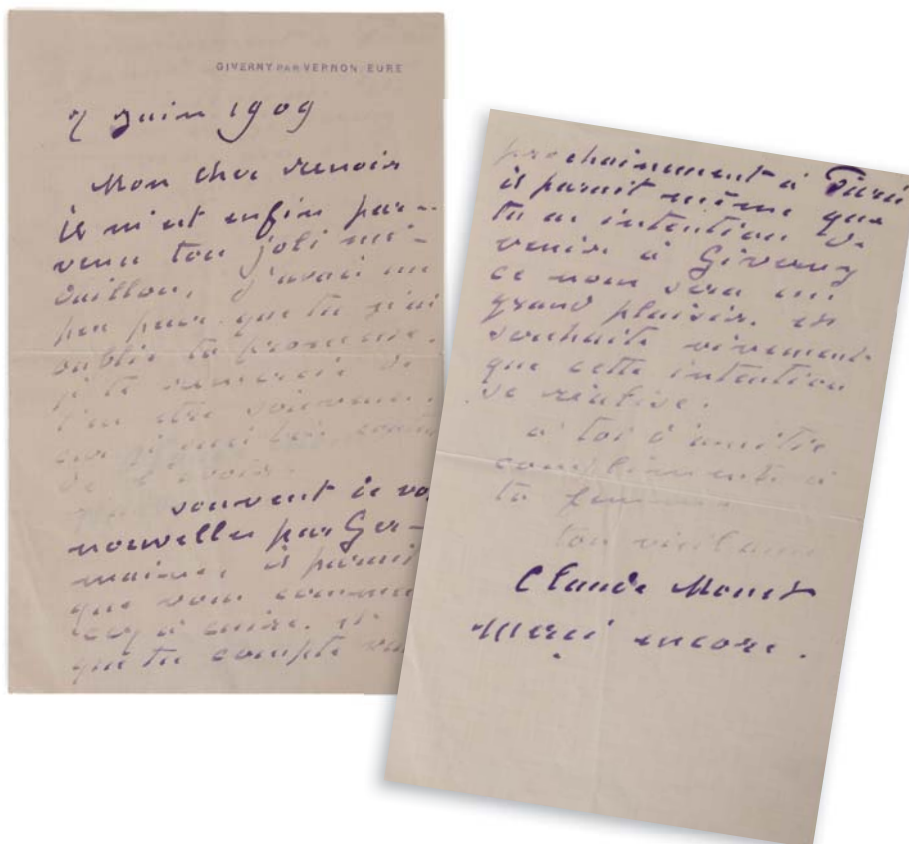 GIVERNY PAR VERNON EURE
7 Juin 1909
Mon cher renoir
il m'est enfin par-
venu ton joli mé-
daillon, j'avais un
peu peur que tu n'ai
oublié ta promesse.
je te remercie de
t'en être souvenu.
de l'avoir.
souvent de vo
nouvelles par Ger-
maine, il parait
que vous commen
cez à cuire. et
que tu compte
prochainement à Paris
il parait même que
tu as intention de
venir à Giverny
ce nous sera un
grand plaisir. et
souhaite vivement
que cette intention
se réalise.
à toi d'amitié
compliments à
ta femme
ton vieil ami
Claude Monet
Merci encore.